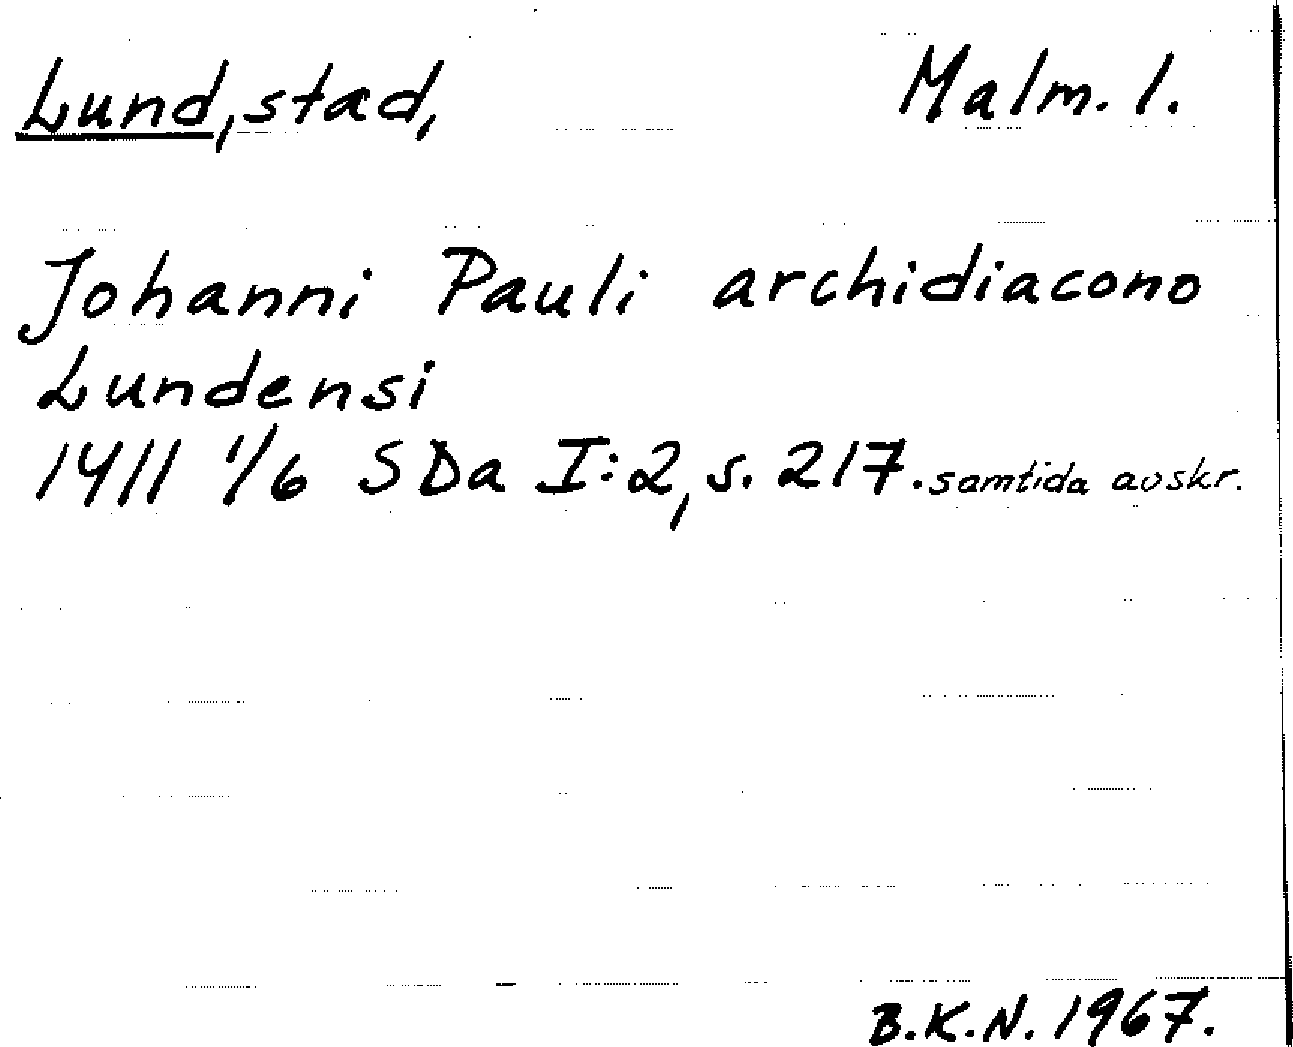 Lund, stad, Malm. l.
Johanni Pauli archidiacono
Lundensi
1411 1/6 SDa I:2, s. 217. samtida avskr.
B.K.N. 1967.